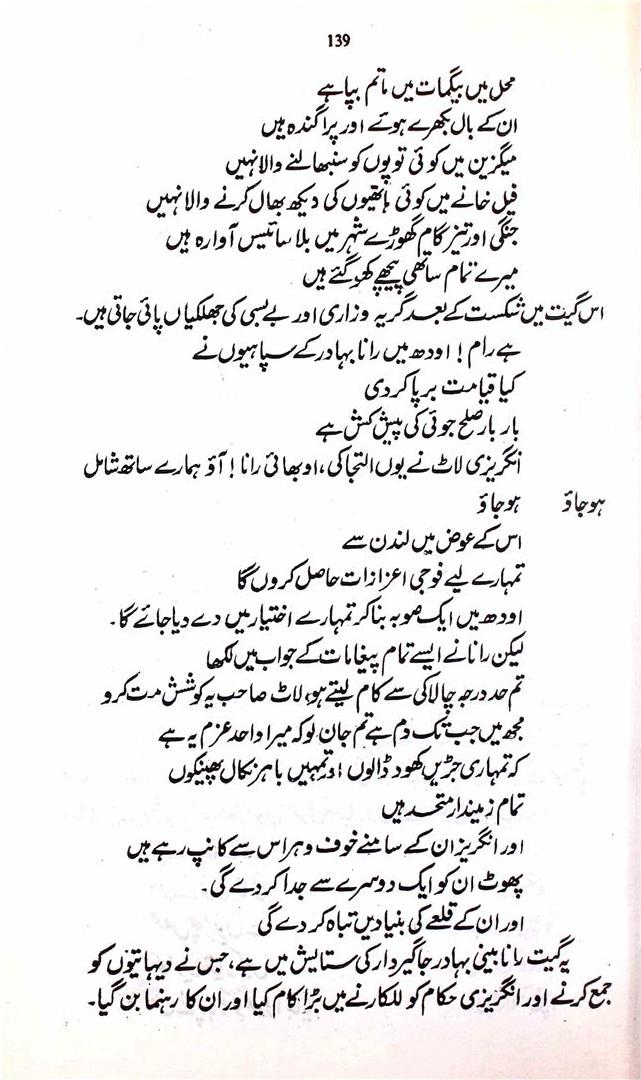 139
محل میں بیگمات میں ماتم بپا ہے
ان کے بال بکھرے ہوئے اور پراگندہ ہیں
میگزین میں کوئی توپوں کو سنبھالنے والا نہیں
فیل خانے میں کوئی ہاتھیوں کی دیکھ بھال کرنے والا نہیں
جنگی اور تیز گام گھوڑے شہر میں بلا سائیس آوارہ ہیں
میرے تمام ساتھی پیچھے کھو گئے ہیں
اس گیت میں شکست کے بعد گریہ وزاری اور بے بسی کی جھلکیاں پائی جاتی ہیں۔
ہے رام! اودھ میں رانا بہادر کے سپاہیوں نے
کیا قیامت برپا کر دی
بار بار صلح جوئی کی پیش کش ہے
انگریزی لاٹ نے یوں التجا کی، او بھائی رانا! آؤ ہمارے ساتھ شامل
ہو جاؤ ہو جاؤ
اس کے عوض میں لندن سے
تمہارے لیے فوجی اعزازات حاصل کروں گا
اودھ میں ایک صوبہ بنا کر تمہارے اختیار میں دے دیا جائے گا۔
لیکن رانا نے ایسے تمام پیغامات کے جواب میں لکھا
تم حد درجہ چالاکی سے کام لیتے ہو، لاٹ صاحب یہ کوشش مت کرو
مجھ میں جب تک دم ہے تم جان لو کہ میرا واحد عزم یہ ہے
کہ تمہاری جڑیں کھود ڈالوں اور تمہیں باہر نکال پھینکوں
تمام زمیندار متحد ہیں
اور انگریز ان کے سامنے خوف و ہراس سے کانپ رہے ہیں
پھوٹ ان کو ایک دوسرے سے جدا کر دے گی۔
اور ان کے قلعے کی بنیادیں تباہ کر دے گی
یہ گیت رانا بینی بہادر جاگیردار کی ستایش میں ہے، جس نے دیہاتیوں کو
جمع کرنے اور انگریزی حکام کو للکارنے میں بڑا کام کیا اور ان کا رہنما بن گیا۔